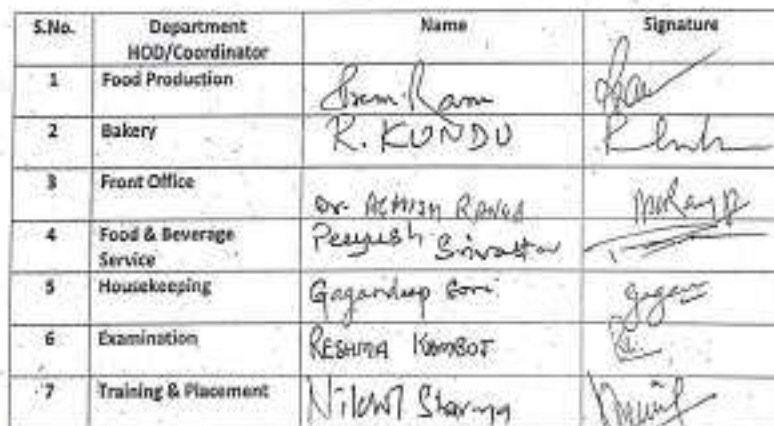 S.No. Department HOD/Coordinator Name Signature
1 Food Production Ram
2 Bakery R. KUNDU
3 Front Office Dr. ACHISH RANGA
4 Food & Beverage Service Peeyush Srivastav
5 Housekeeping Gagandeep Soni gagan
6 Examination RESHMA KAMBOJ
7 Training & Placement Nikhil Sharma